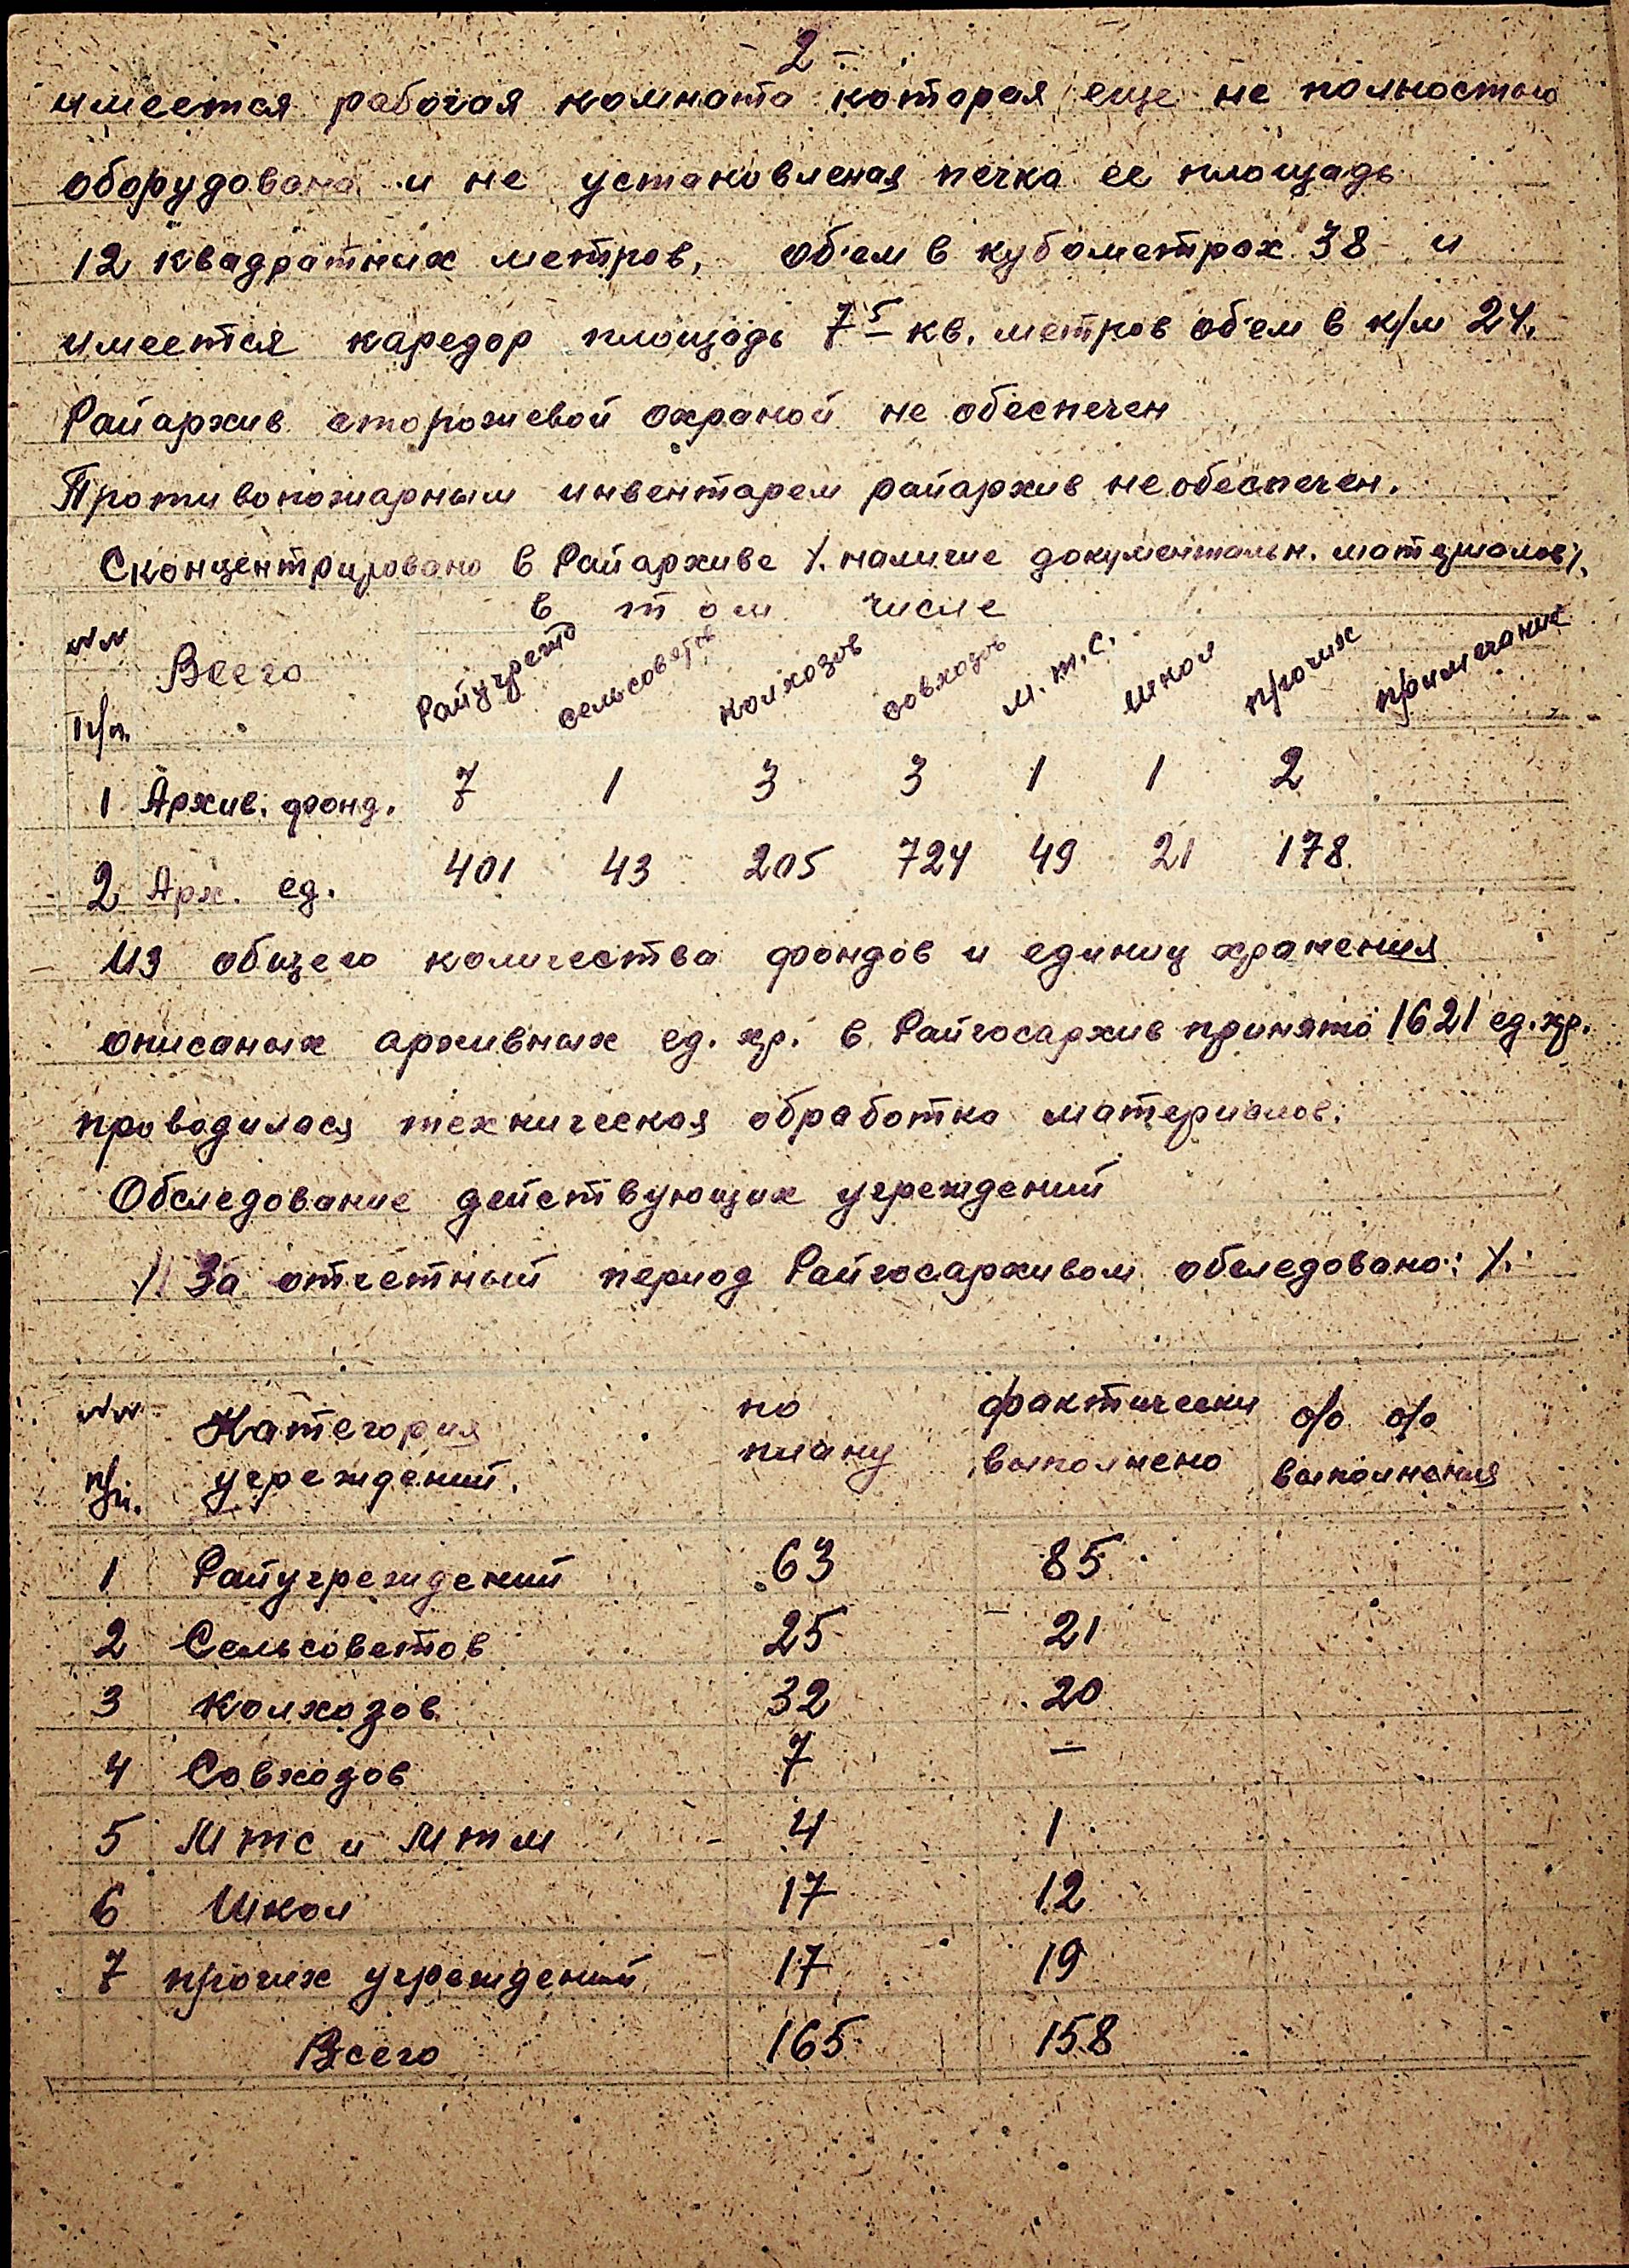 2 -
имеется рабочая комната которая еще не полностью
оборудована и не установленая печка ее площадь
12 квадратних метров, об'ем в кубометрах 38 и
имеется каредор площадь 7 5 кв. метров об'ем в к/м 24.
Райархив сторожевой охраной не обеспечен
Противопожарным инвентарем райархив не обеспечен.
Сконцентрировано в Райархиве /. наличие документальн. материалов /.
в том числе
№№ п/п. Всего Райучрежд сельсоветов колхозов совхозов м.т.с. школ прочих примечание
1 Архив. фонд. 7 1 3 3 1 1 2
2 Арх. ед. 401 43 205 724 49 21 178
Из общего количества фондов и единиц хранения
описаных архивных ед. хр. в Райгосархив принято 1621 ед. хр.
проводилася техническая обработка материалов.
Обследование действующих учреждений
/. За отчетный период Райгосархивом обследовано: /.
№№ Категория по фактически % %
п/п. учреждений. плану выполнено выполнения
1 Райучреждений 63 85
2 Сельсоветов 25 21
3 Колхозов 32 20
4 Совхозов 7 —
5 Мтс и Мтм 4 1
6 Школ 17 12
7 прочих учреждений 17 19
Всего 165 158